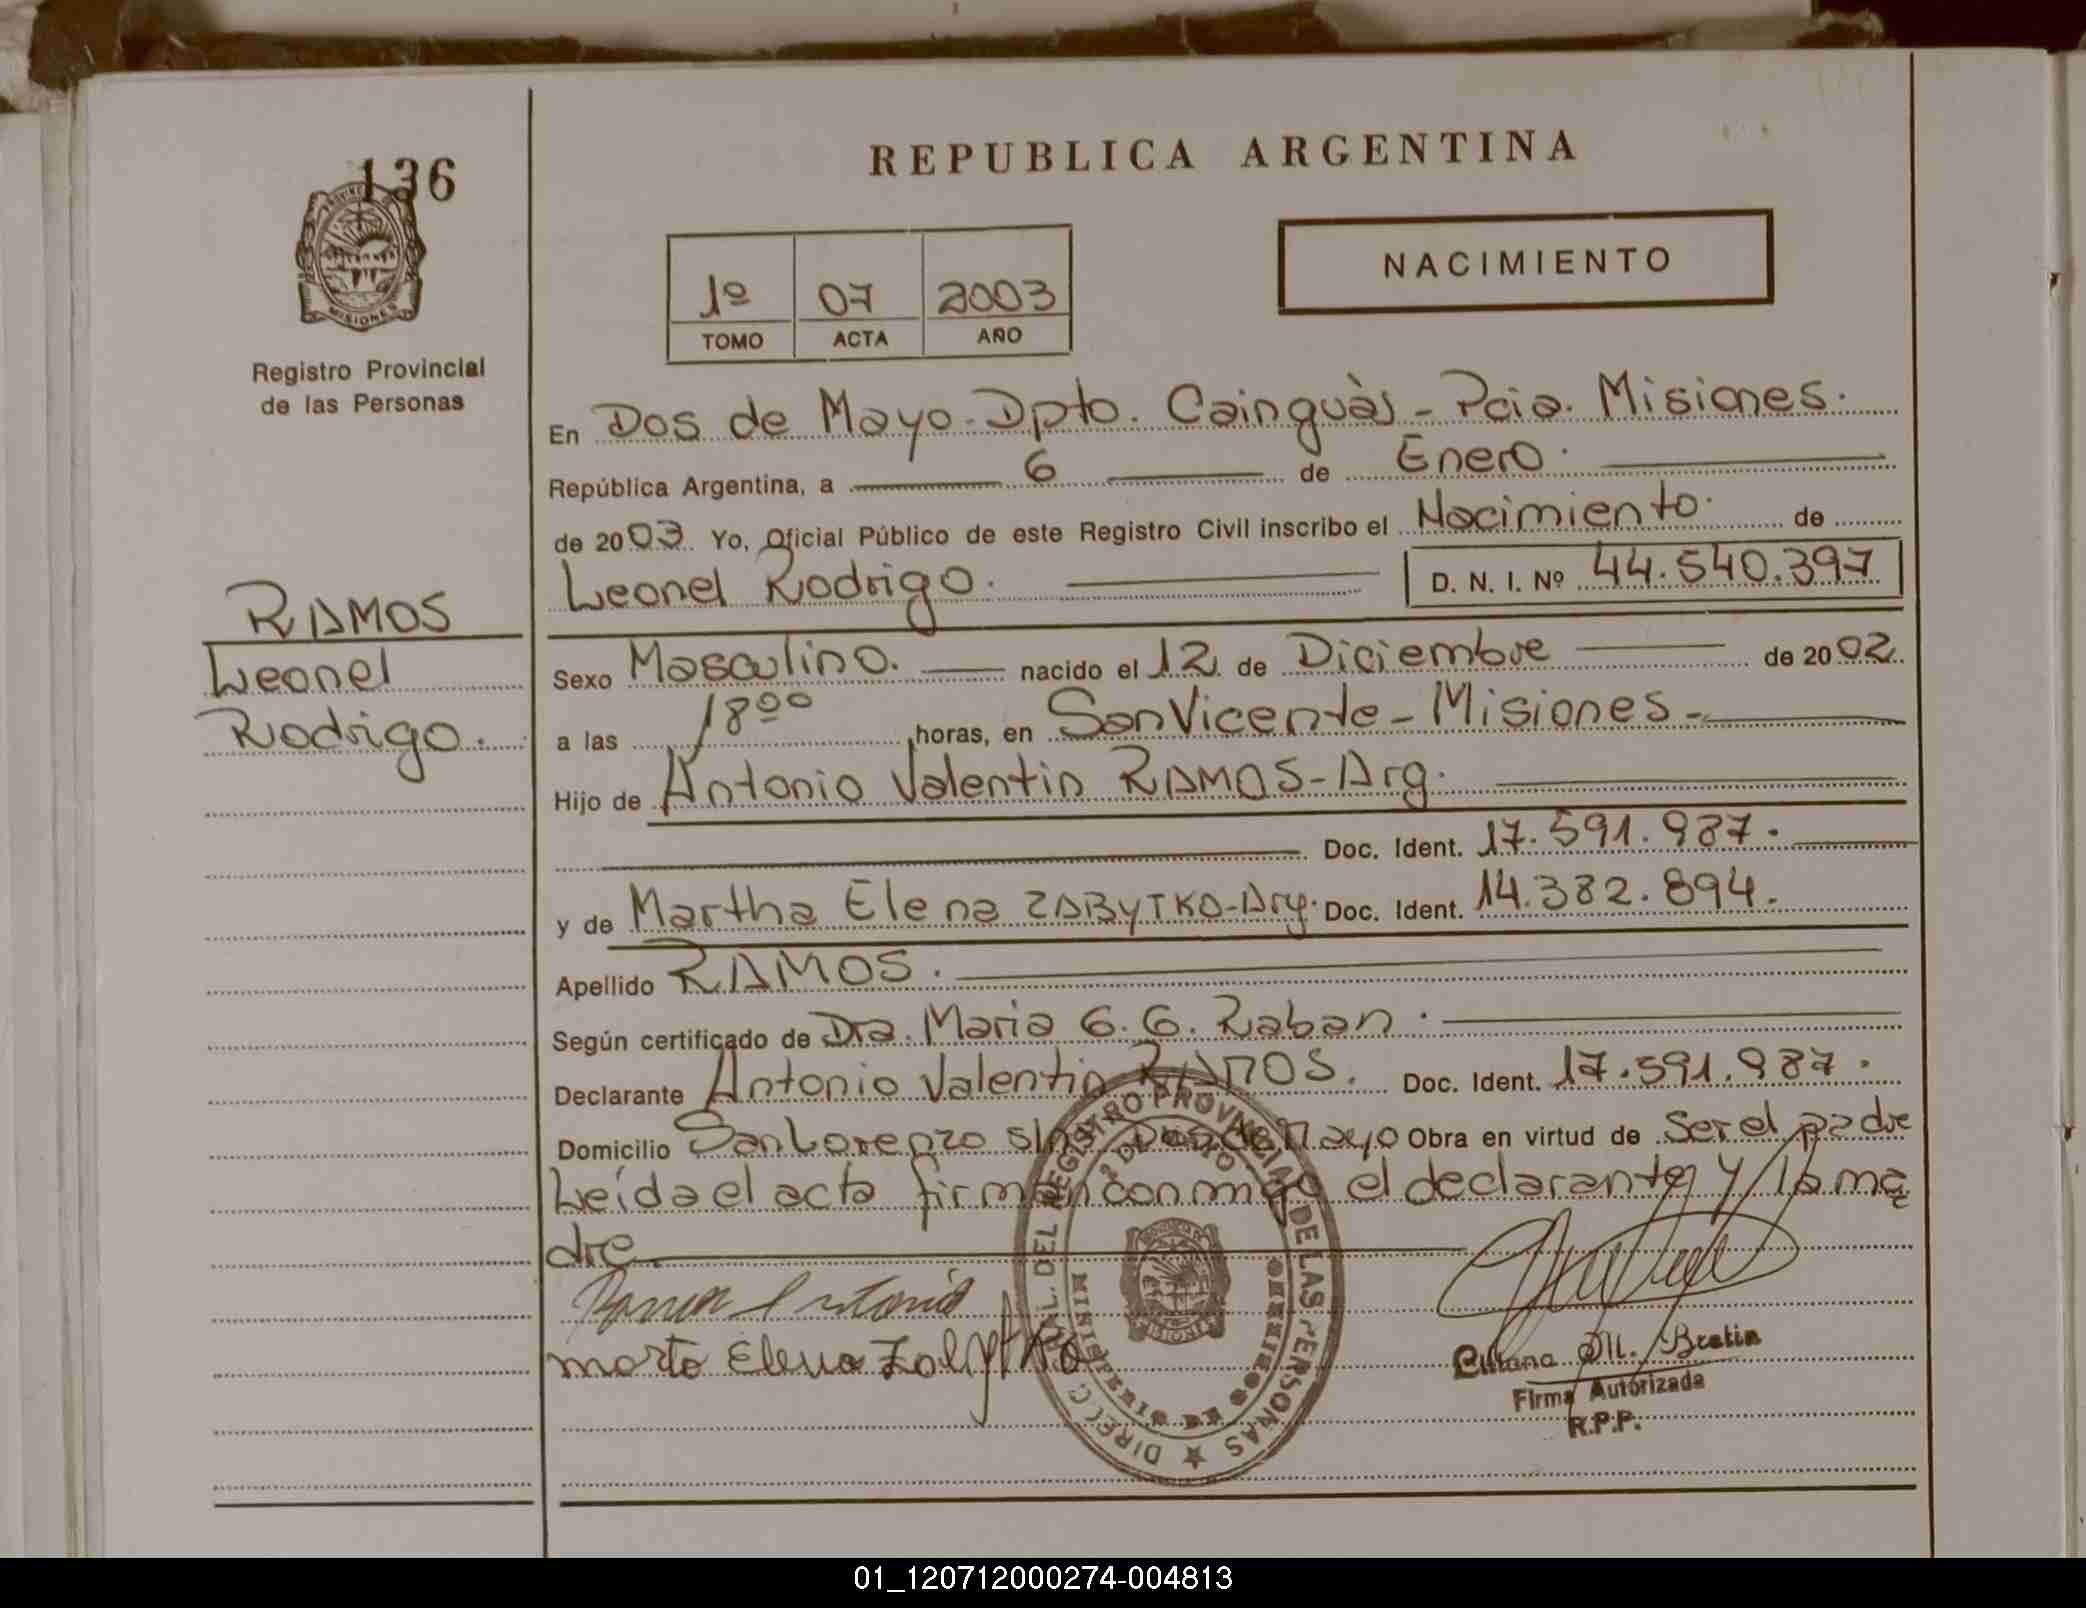 136
REPUBLICA ARGENTINA
NACIMIENTO
1º 07 2003
TOMO ACTA AÑO
Registro Provincial
de las Personas
En Dos de Mayo - Dpto. Cainguàs - Pcia. Misiones.
República Argentina, a 6 de Enero.
de 2003. Yo, Oficial Público de este Registro Civil inscribo el Nacimiento. de
Leonel Rodrigo. D. N. I. Nº 44.540.397
RAMOS
Leonel
Rodrigo.
Sexo Masculino. nacido el 12 de Diciembre de 2002.
a las 18⁰⁰ horas, en San Vicente - Misiones -
Hijo de Antonio Valentin RAMOS - Arg.
Doc. Ident. 17.591.987.
y de Martha Elena ZABYTKO - Arg. Doc. Ident. 14.382.894.
Apellido RAMOS.
Según certificado de Dra. Maria G. G. Raban.
Declarante Antonio Valentin RAMOS. Doc. Ident. 17.591.987.
Domicilio San Lorenzo s/n Dos de Mayo Obra en virtud de ser el padre
Leída el acta firman conmigo el declarante y la ma
dre.
Ramos Antonio
marta Elena Zabytko
DIREC. GRAL. DEL REGISTRO PROVINCIAL DE LAS PERSONAS
MINISTERIO DE GOBIERNO
MISIONES
M. Bretin
Firma Autorizada
R.P.P.
01_120712000274-004813